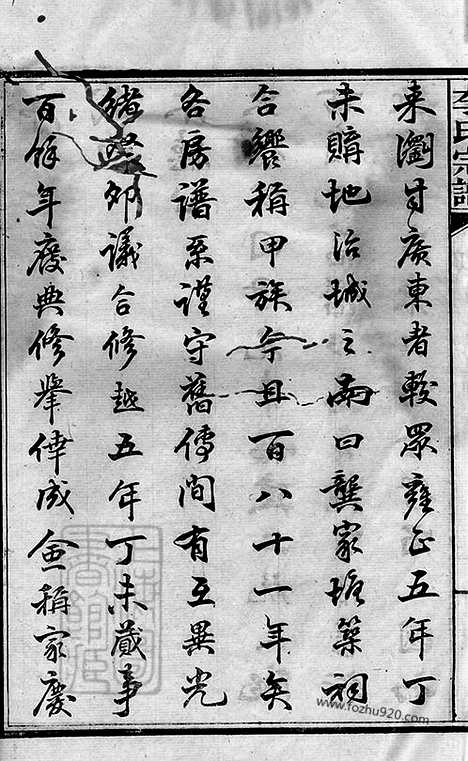 李氏宗譜
来瀏自廣東者較眾雍正五年丁
未購地治城之南曰龔家塘築祠
合饗稱甲族今且百八十一年矣
各房譜系謹守舊傳間有互異光
緒癸卯議合修越五年丁未蕆事
百餘年廢典修舉倖成僉稱家慶
www.fozhu920.com